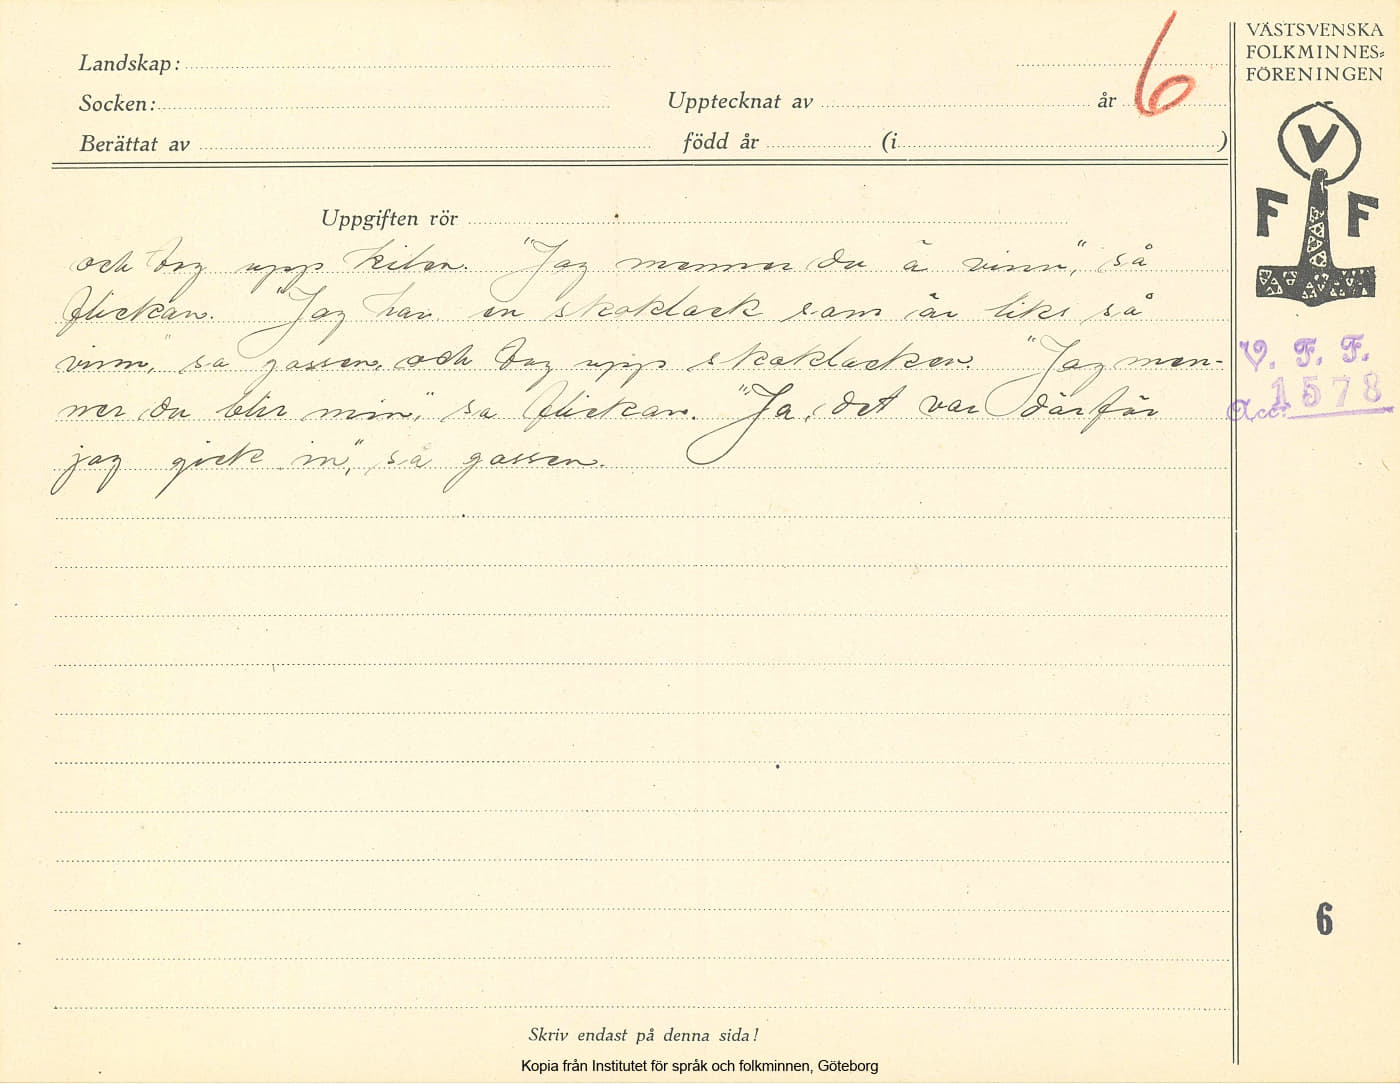 Landskap:
Socken:
Upptecknat av
år 6
Berättat av
född år
(i
)
VÄSTSVENSKA
FOLKMINNES=
FÖRENINGEN
V
F F
Uppgiften rör
och tog upp kilen. "Jag menner du ä vinn", sa
flickan. "Jag har en skoklack som är lika så
vinn," sa gossen, och tog upp skoklacken. "Jag men-
ner du blir min", sa flickan. "Ja, det var därför
jag gick in", sa gossen.
V. F. F.
Acc. 1578
6
Skriv endast på denna sida!
Kopia från Institutet för språk och folkminnen, Göteborg